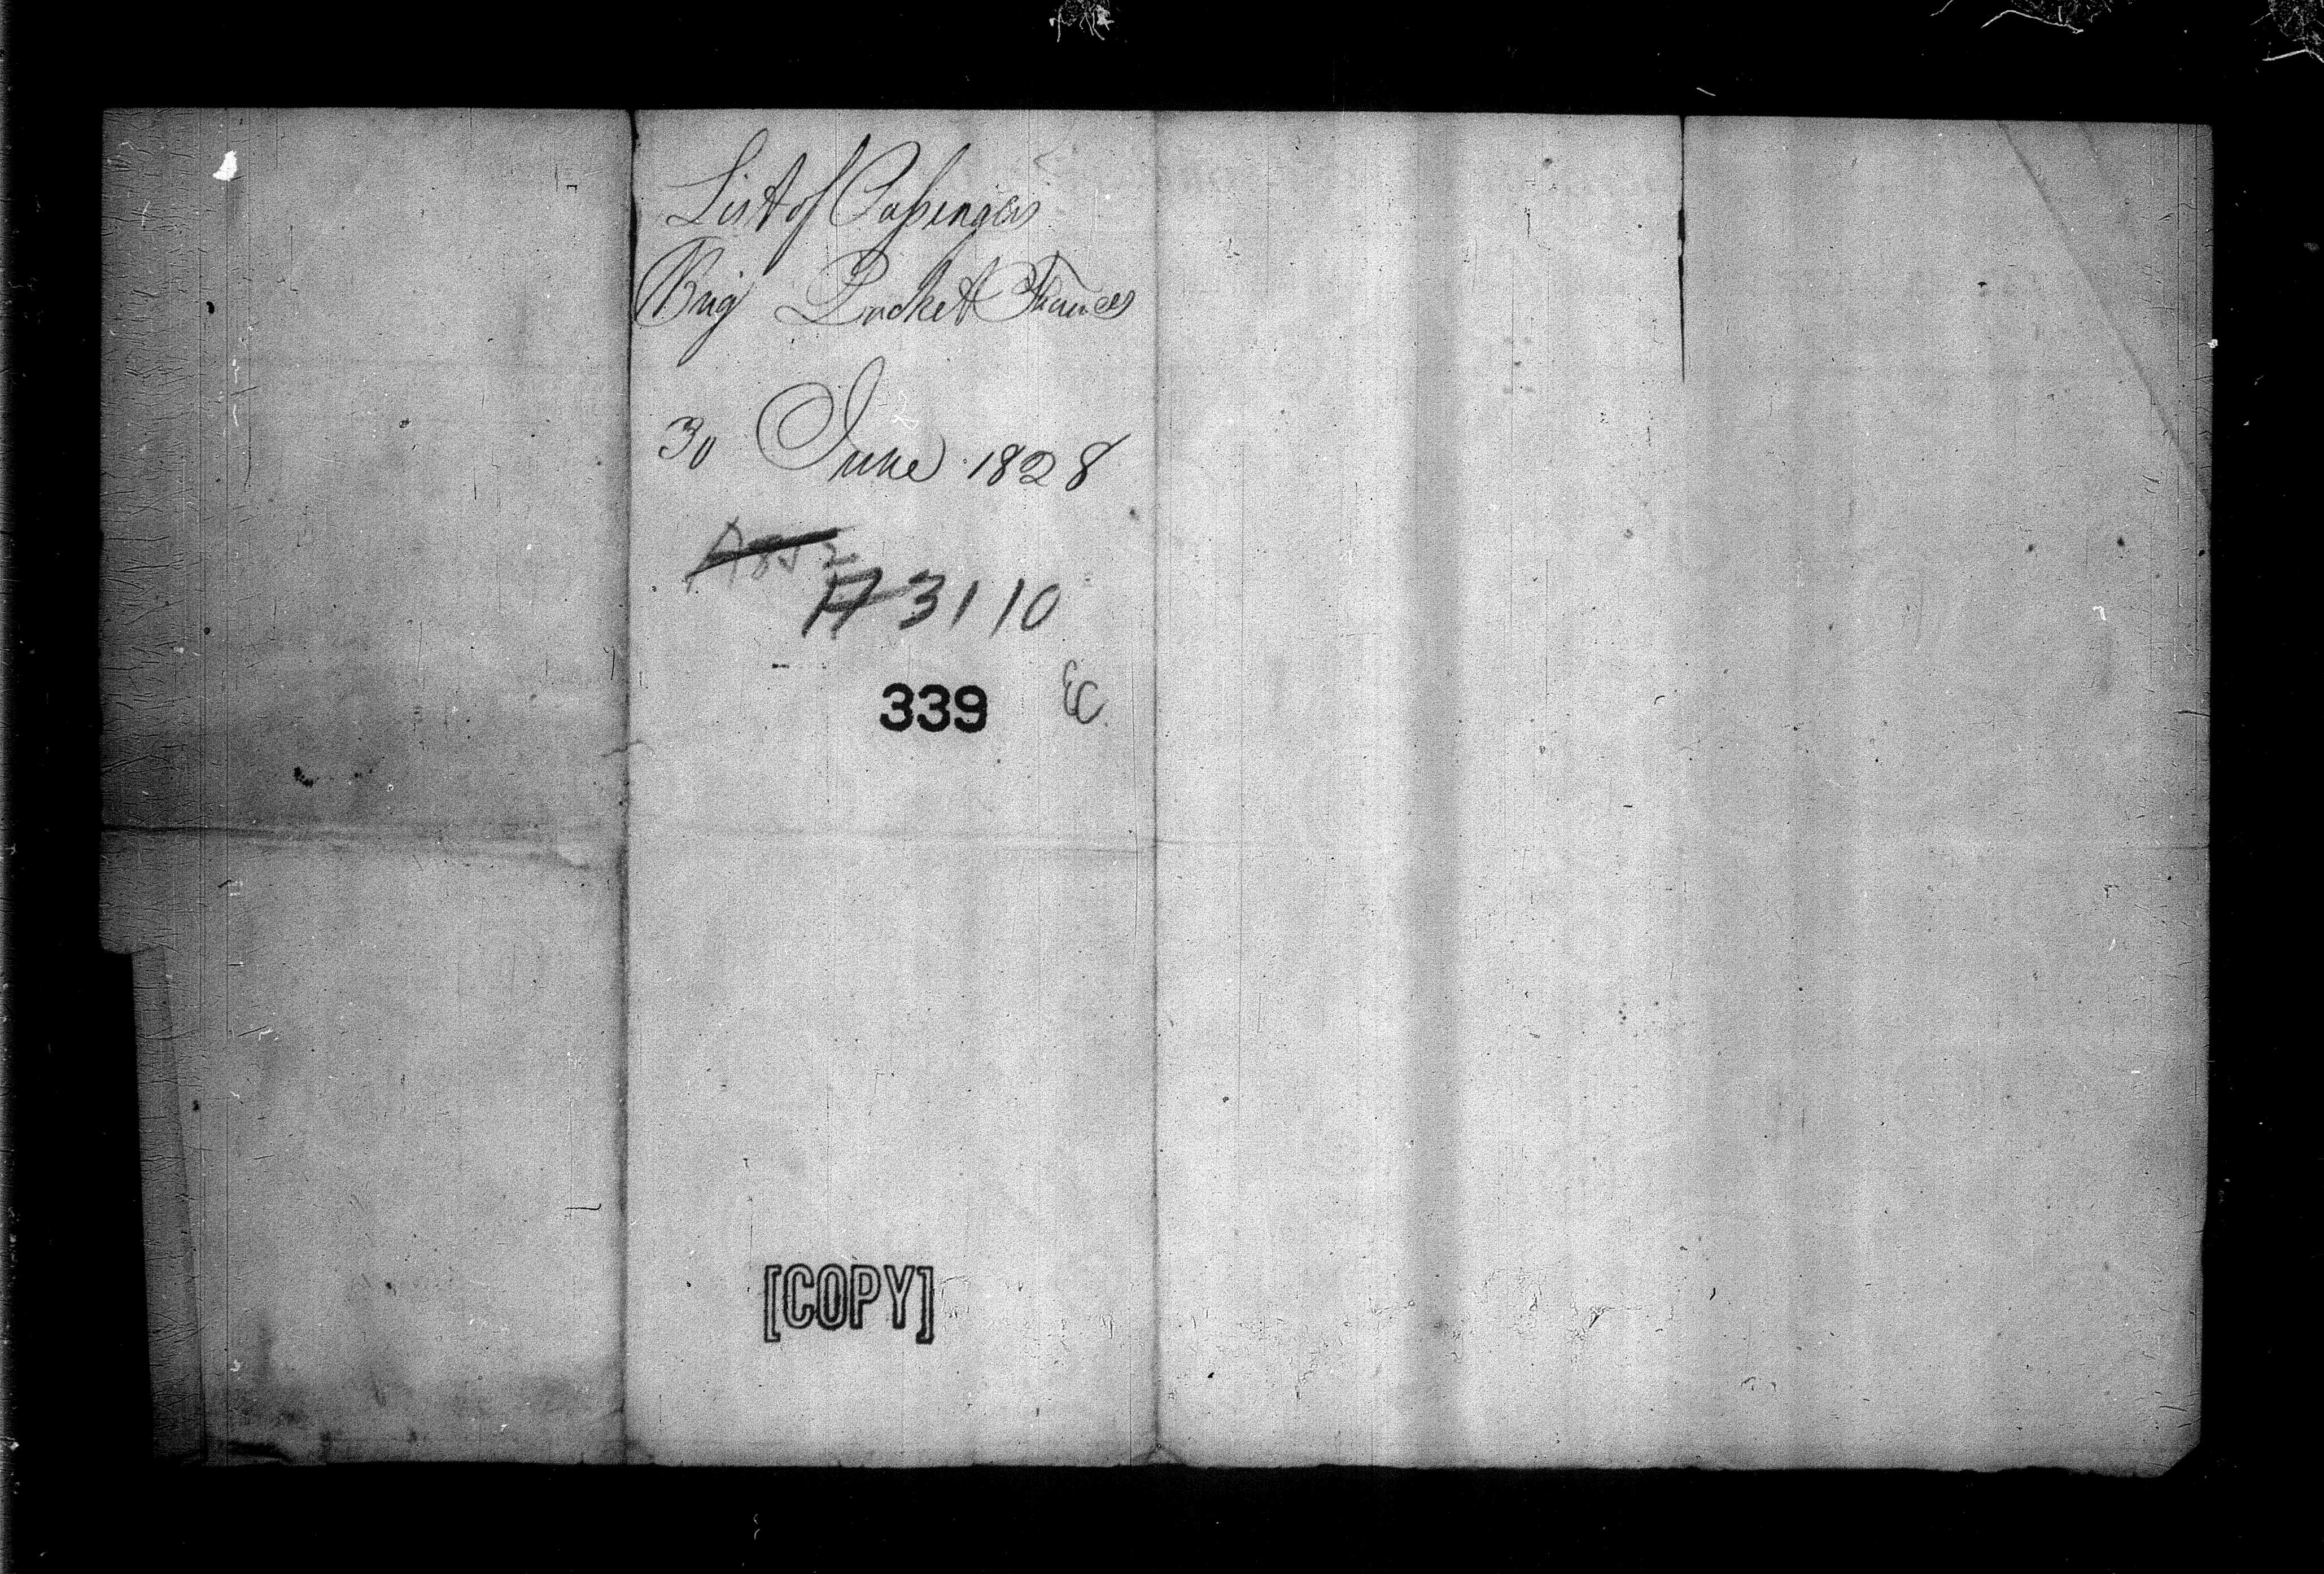 List of Passengers
Brig Packet Frances
30 June 1828
A 3110
339 EC
[COPY]